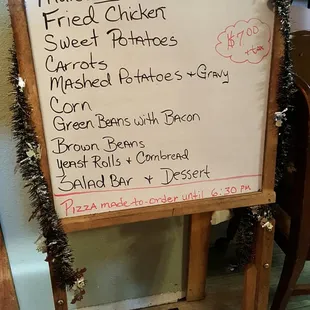 Fried Chicken
Sweet Potatoes
$7.00
+ tax
Carrots
Mashed Potatoes + Gravy
Corn
Green Beans with Bacon
Brown Beans
Yeast Rolls + Cornbread
Salad Bar + Dessert
Pizza made-to-order until 6:30 PM